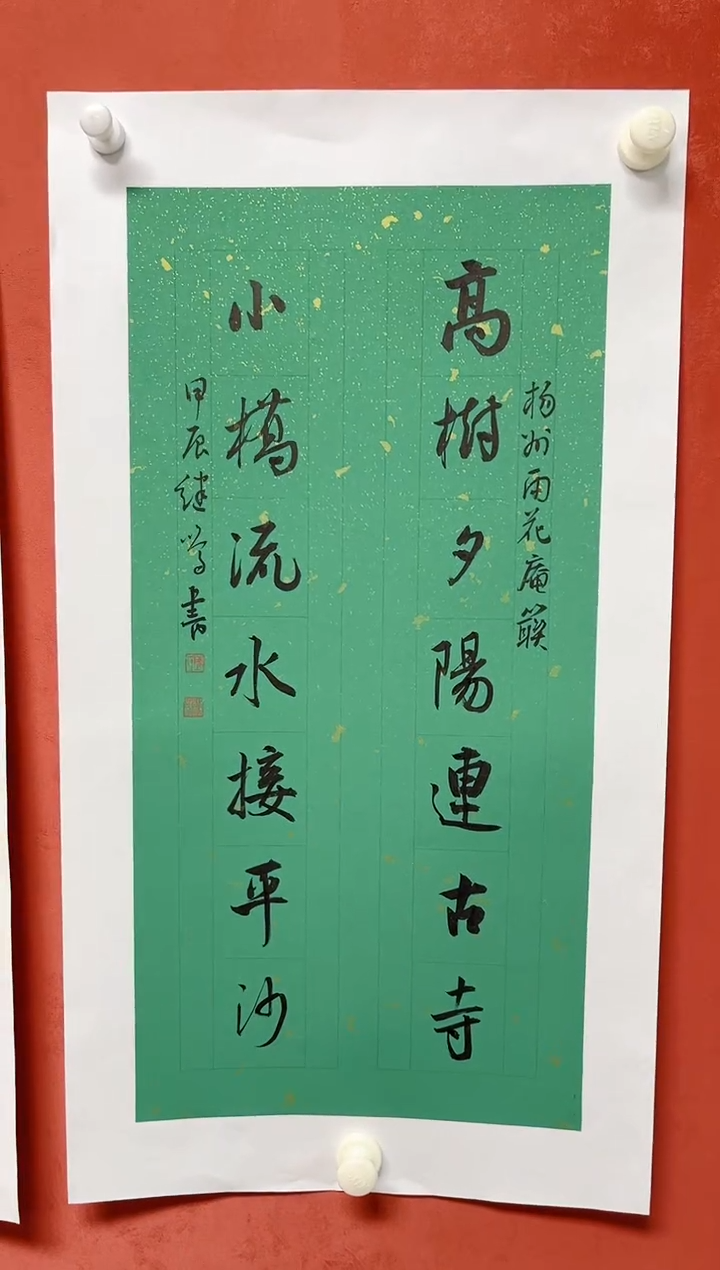 杨州雨花庵聫
高樹夕陽連古寺
小橋流水接平沙
甲辰继莺書